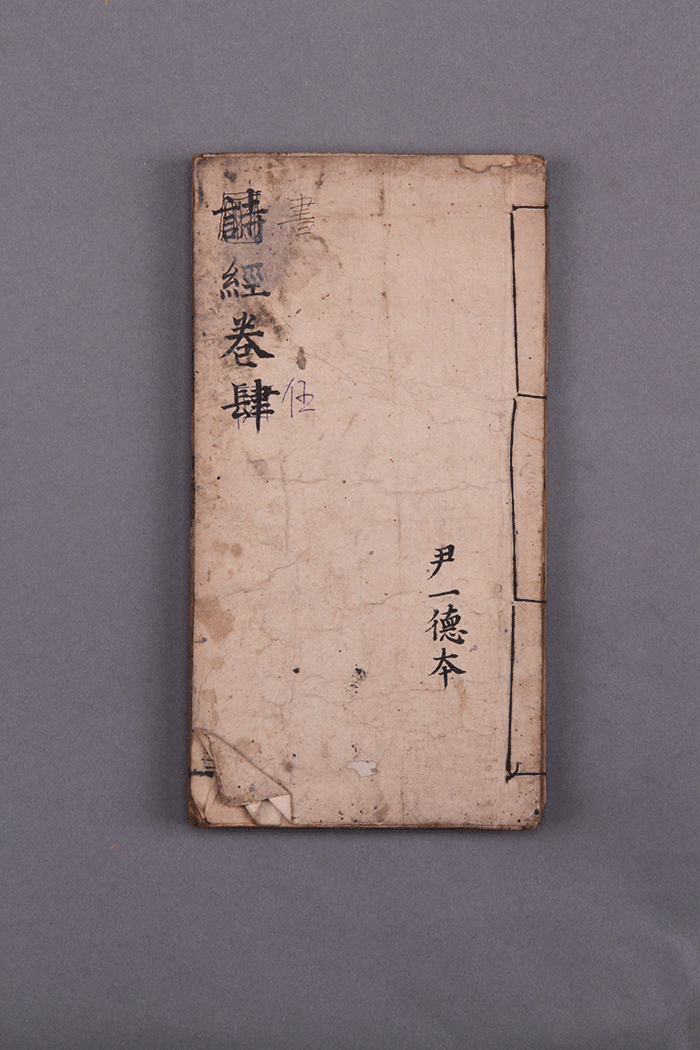 尹一德本
書
伍
詩經卷肆